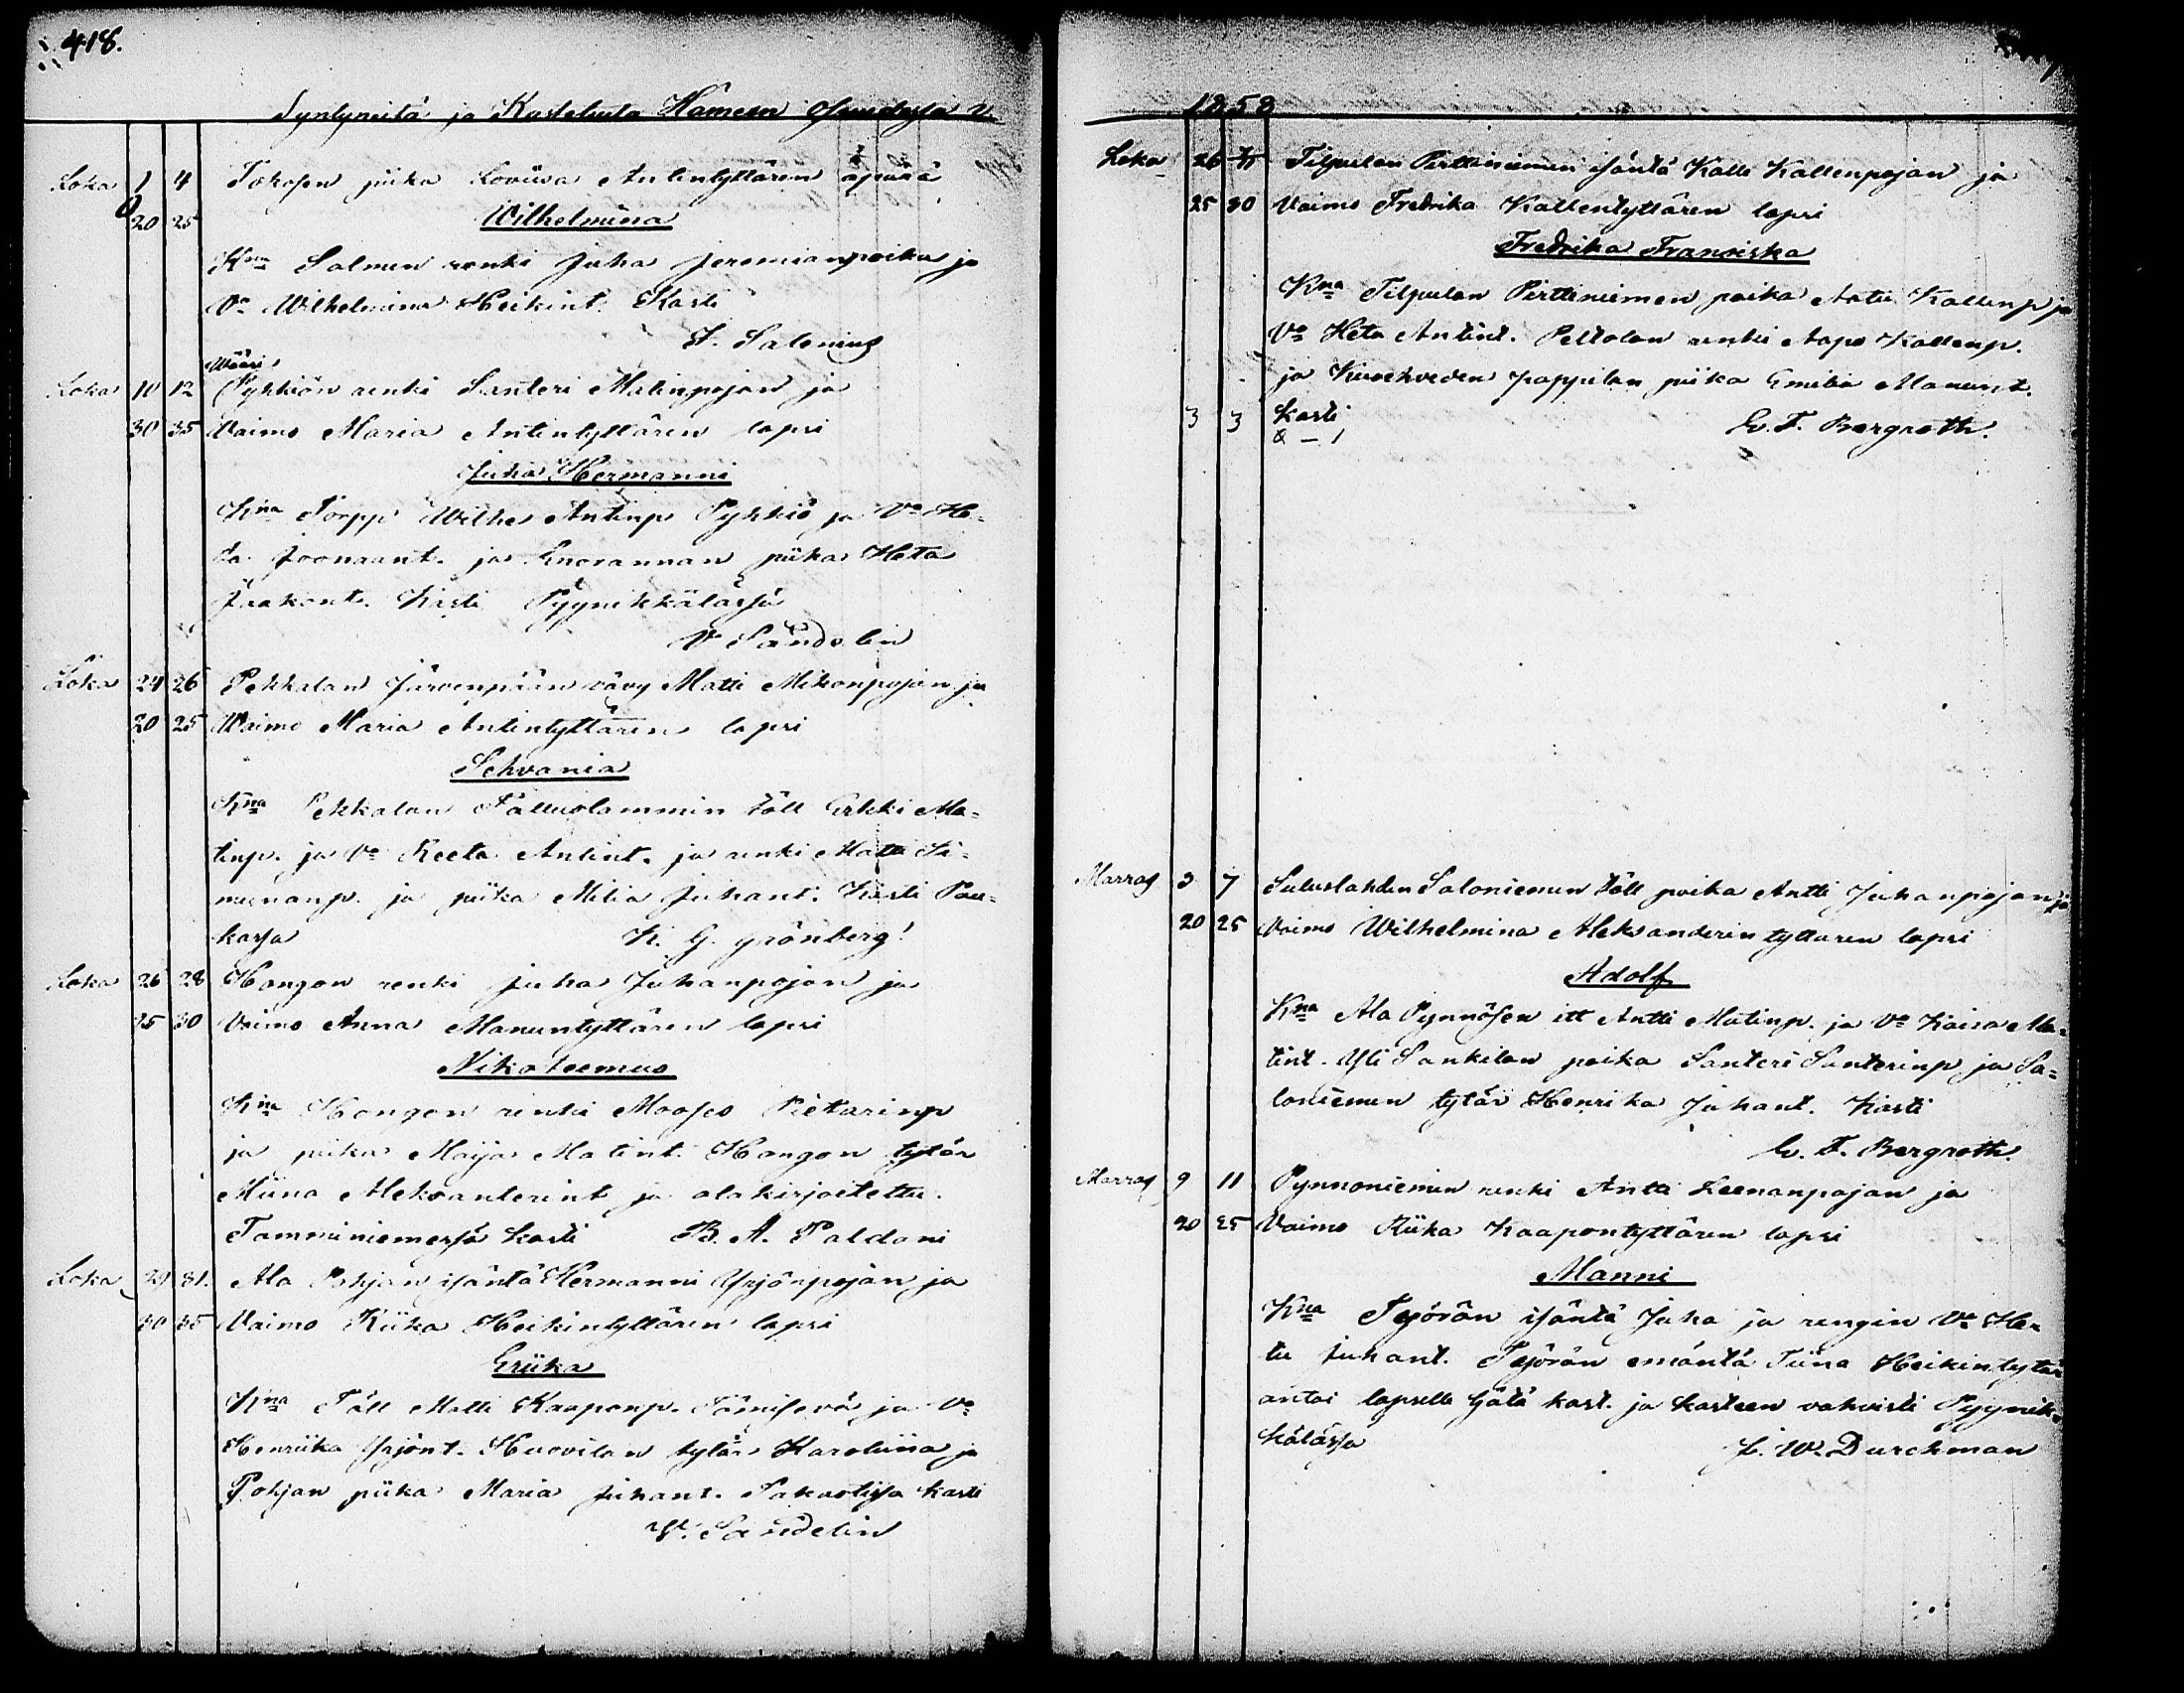 418.
Syntyneitä ja Kastetuita Hameen v.
Loka 1 4 Tokosen piika Loviisa Antintyttären äpärä
20 25 Wilhelmina
Kna Salmen renki Juha Jeremianpoika ja
Vo Wilhelmina Heikint. Kasti
F. Salonius
Wääri
Loka 10 12 Pykkiön renki Santeri Matinpojan ja
30 35 Vaimo Maria Antintyttären lapsi
Juha Hermanni
Kna Torpp Wilhe Antinp Pykkiö ja Vo He-
ta Joonaant. ja Enorannan piika Heta
Jaakont. Kasti Pyynikkälässä
V Sandelin
Loka 24 26 Pekkalan Järvenpään vävy Matti Mikonpojan ja
20 25 Waimo Maria Antintyttären lapsi
Sehvania
Kna Pekkalan Palluolammin töll Erkki Ma-
tinp. ja Vo Reeta Antint. ja renki Matti Si-
munanp. ja piika Milia Juhant. Kasti Pau-
kassa K. G. Grönberg
Loka 26 28 Hangon renki Juha Juhanpojan ja
25 30 Vaimo Anna Manuntyttären lapsi
Nikoteemus
Kna Hongon renki Mooses Pietarinp
ja piika Maija Matint. Hangon tytär
Miina Aleksanterint ja alakirjoitettu.
Tamminiemessä kasti B. A. Paldani
Loka 29 31. Ala Pohjan isäntä Hermanni Yrjönpojan ja
30 35 Vaimo Riika Heikintyttären lapsi
Eriika
Kna Töll Matti Kaaponp. Tämisevä ja Vo
Henriika Yrjönt. Huovilan tytär Karoliina ja
Pohjan piika Maria Juhant. kasti
V. Sandelin
1858
Loka 26 Tilpulan Perttiniemen isäntä Kalle Kallenpojan ja
25 30 Vaimo Fredrika Kallentyttären lapsi
Fredrika Fransiska
Kna Tilpulan Pirttiniemen poika Antti Kallenp ja
Vo Heta Antint. Peltolan renki Aapo Kallenp.
ja Kivehveden pappilan piika Emilia Manunt.
3 3 Kasti E. F. Bergroth.
Marras 3 7 Suluslahden Saloniemen töll poika Antti Juhanpojan ja
20 25 Vaimo Wilhelmina Aleksanderin tyttären lapsi
Adolf
Kna Ala Pynnösen itt Antti Matinp. ja Vo Kaisa Ma-
tint. Yli Sankilan poika Santeri Santerinp ja Sa-
loniemen tytär Henrika Juhant. Kasti
E. F. Bergroth.
Marras 9 11 Pynnoniemen renki Antti Leenanpojan ja
20 25 Vaimo Riika Kaapontyttären lapsi
Manni
Kna Tejörän isäntä Juha ja rengin Vo He-
ta Juhant. Tejörän emäntä Tiina Heikintytär
antoi lapselle hätä kast. ja kasteen vahvisti Pyynik-
kälässä L. W. Durchman